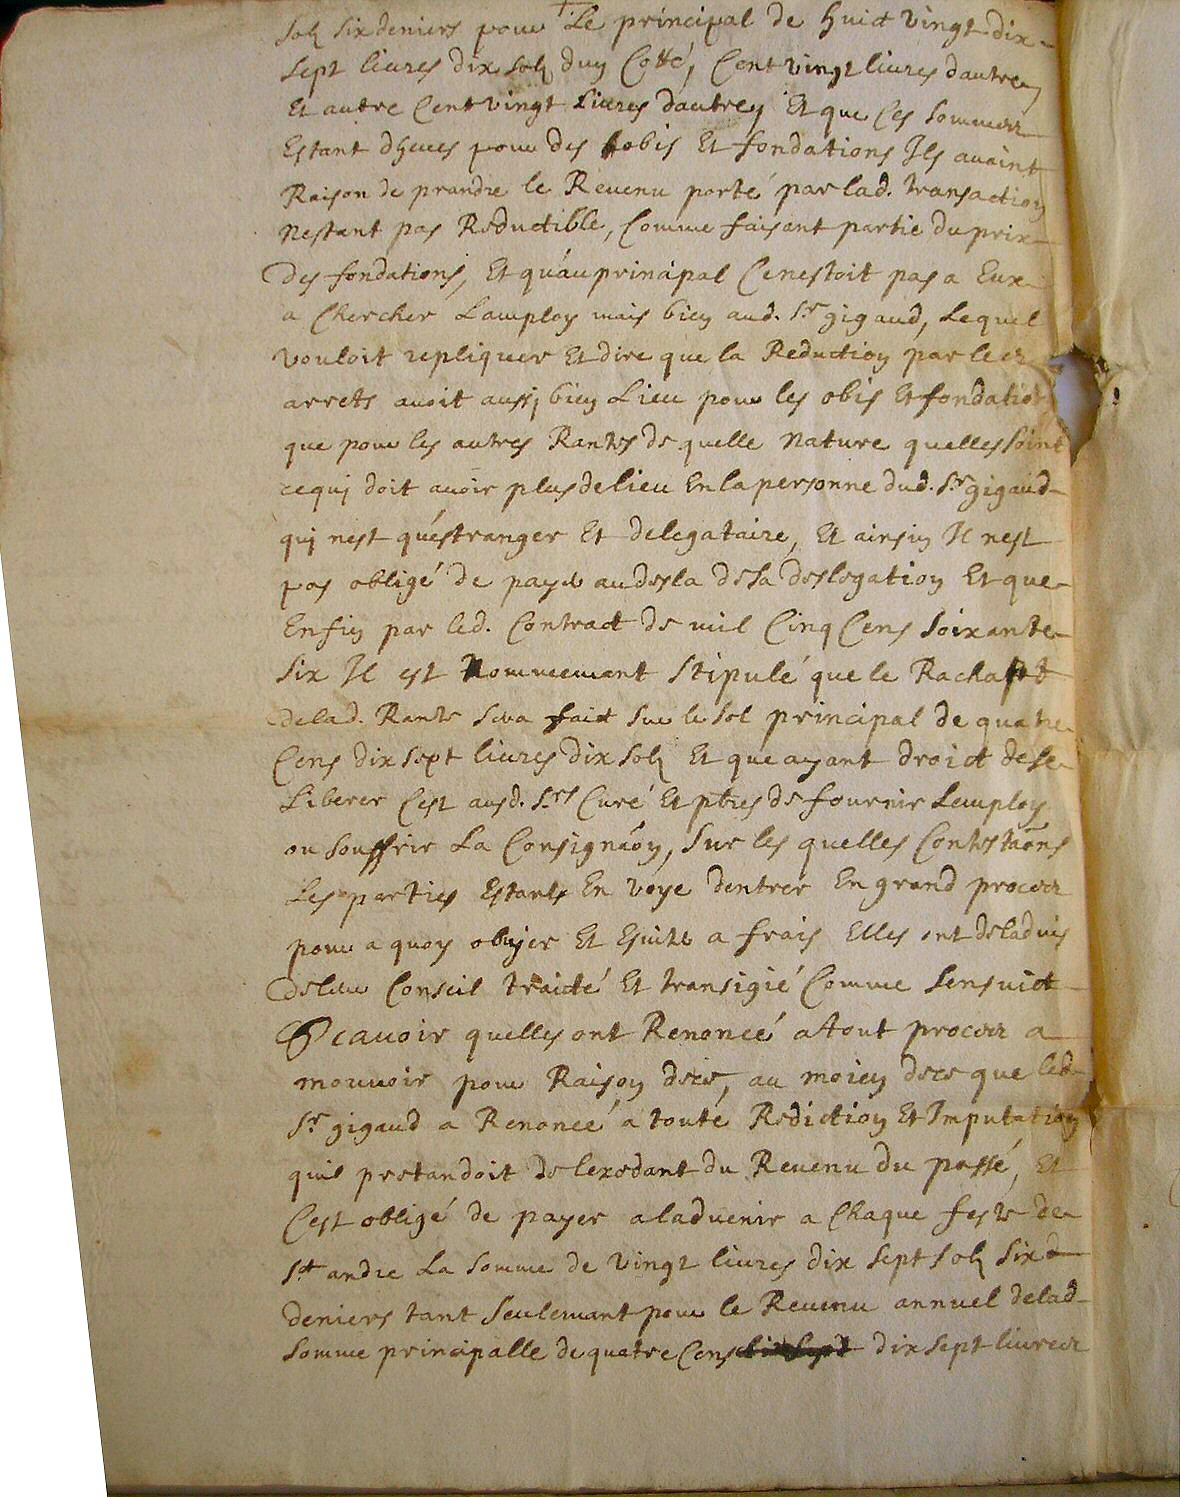 solz six deniers pour Le principal de huict vingt dix
sept livres dix solz duy Cotté, Cent vingt livres dautre
Et autre Cent vingt Livres dautrey Et que Ces sommes
Estant dheues pour des obis Et fondations Ils avaint
Raison de prandre le Revenu porté par lad. transaction
Nestant pas Reductible, Comme faisant partie du prix
Des fondations, Et quau principal Ce nestoit pas a Eux
a Chercher Lamploy mais bien aud. Sr gigaud, Lequel
vouloit repliquer Et dire que la Reduction par les
arrets avoit aussy bien Lieu pour les obis Et fondations
que pour les autres Rantes de quelle Nature quelles soint
ce quj doit avoir plus de lieu En la personne dud. Sr gigaud
quj nest quéstranger Et delegataire, Et ainsin Il nest
pas obligé de payer audela de sa deslegation Et que
Enfin par led. Contract de mil Cinq Cens soixante
six Il est Nommemant stipulé que le Rachapt
de lad. Rante sera faict sur le sol principal de quatre
Cens dix sept livres dix solz Et que ayant droict de se
Liberer Cest ausd. Srs Curé Et ptres de fournir Lemploy
ou souffrir La Consignaon, sur les quelles Contestaons
Les parties Estants En voye dentrer En grand proces
pour a quoy obvier Et Esvite a frais Elles ont de ladvis
de leur Conseil traicté Et transigié Comme sensuict
Scavoir quelles ont Renoncé a tout proces a
mouvoir pour Raison dece, au moien dece que led
Sr gigaud a Renoncé a touté Rediction Et Imputation
quil pretandoit de lexcedant du Revenu du passé, Et
Cest obligé de payer a ladvenir a Chaque feste de
St andre La somme de vingt livres dix sept solz six
deniers tant seulemant pour le Revenu annuel de lad
somme principalle de quatre Cens dix sept livres